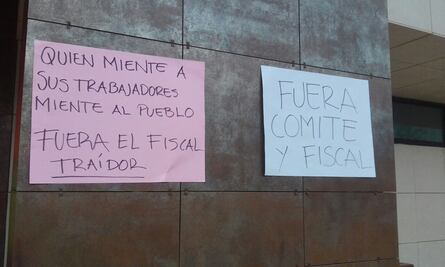 QUIEN MIENTE A
SUS TRABAJADORES
MIENTE AL PUEBLO
FUERA EL FISCAL
TRAÍDOR
FUERA
COMITE
Y FISCAL